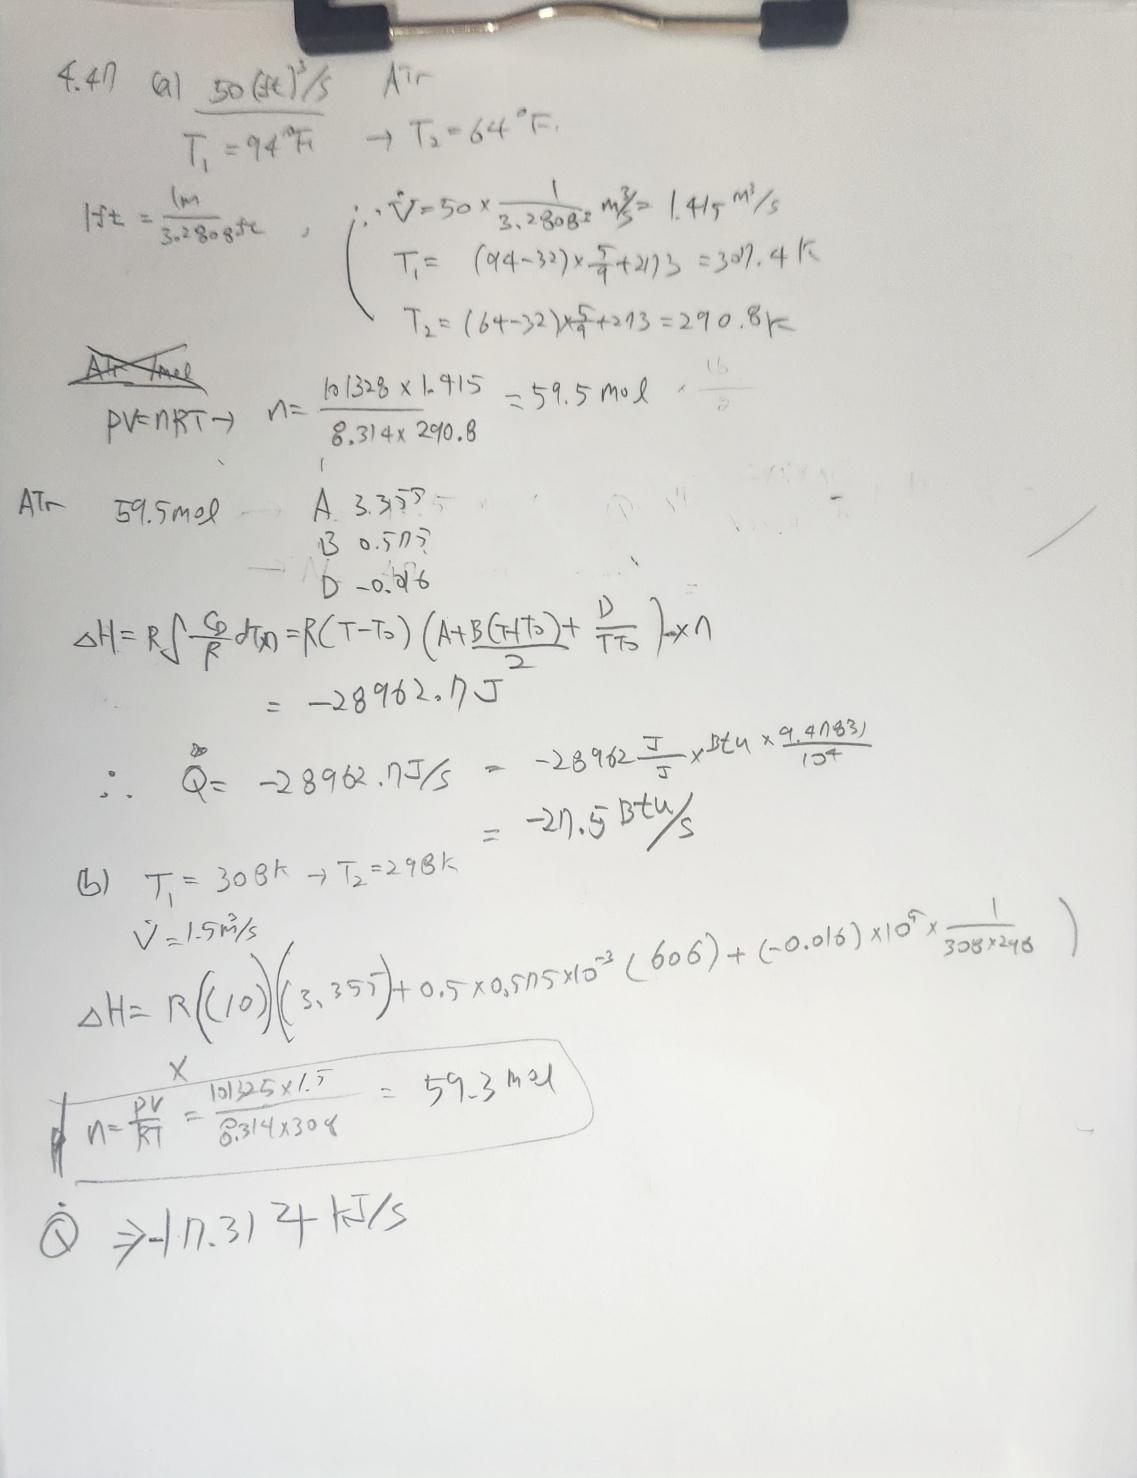 4.47 (a) 50(ft)³/s Air
T₁ = 94°F → T₂ = 64°F.
1ft = 1m/3.2808ft , ∴ V̇ = 50 × 1/3.2808² m³/s = 1.415 m³/s
T₁ = (94-32)×5/9+273 = 307.4 K
T₂ = (64-32)×5/9+273 = 290.8K
PV=nRT → n= 101328 × 1.415 / 8.314 × 290.8 = 59.5 mol
Air 59.5mol A 3.355
B 0.575
D -0.016
ΔH = R∫ Cp/R dT(n) = R(T-T₀) (A+B(T+T₀)/2 + D/TT₀) × n
= -28962.7 J
∴ Q̇ = -28962.7J/s = -28962 J/J × Btu × 9.47831/10⁴
= -27.5 Btu/s
(b) T₁ = 308K → T₂ = 298K
V̇ = 1.5m³/s
ΔH = R((10)(3.355)+0.5×0.575×10⁻³(606)+(-0.016)×10⁵× 1/308×298 )
×
n = PV/RT = 101325×1.5 / 8.314×308 = 59.3 mol
Q̇ ⇒ -17.314 kJ/s